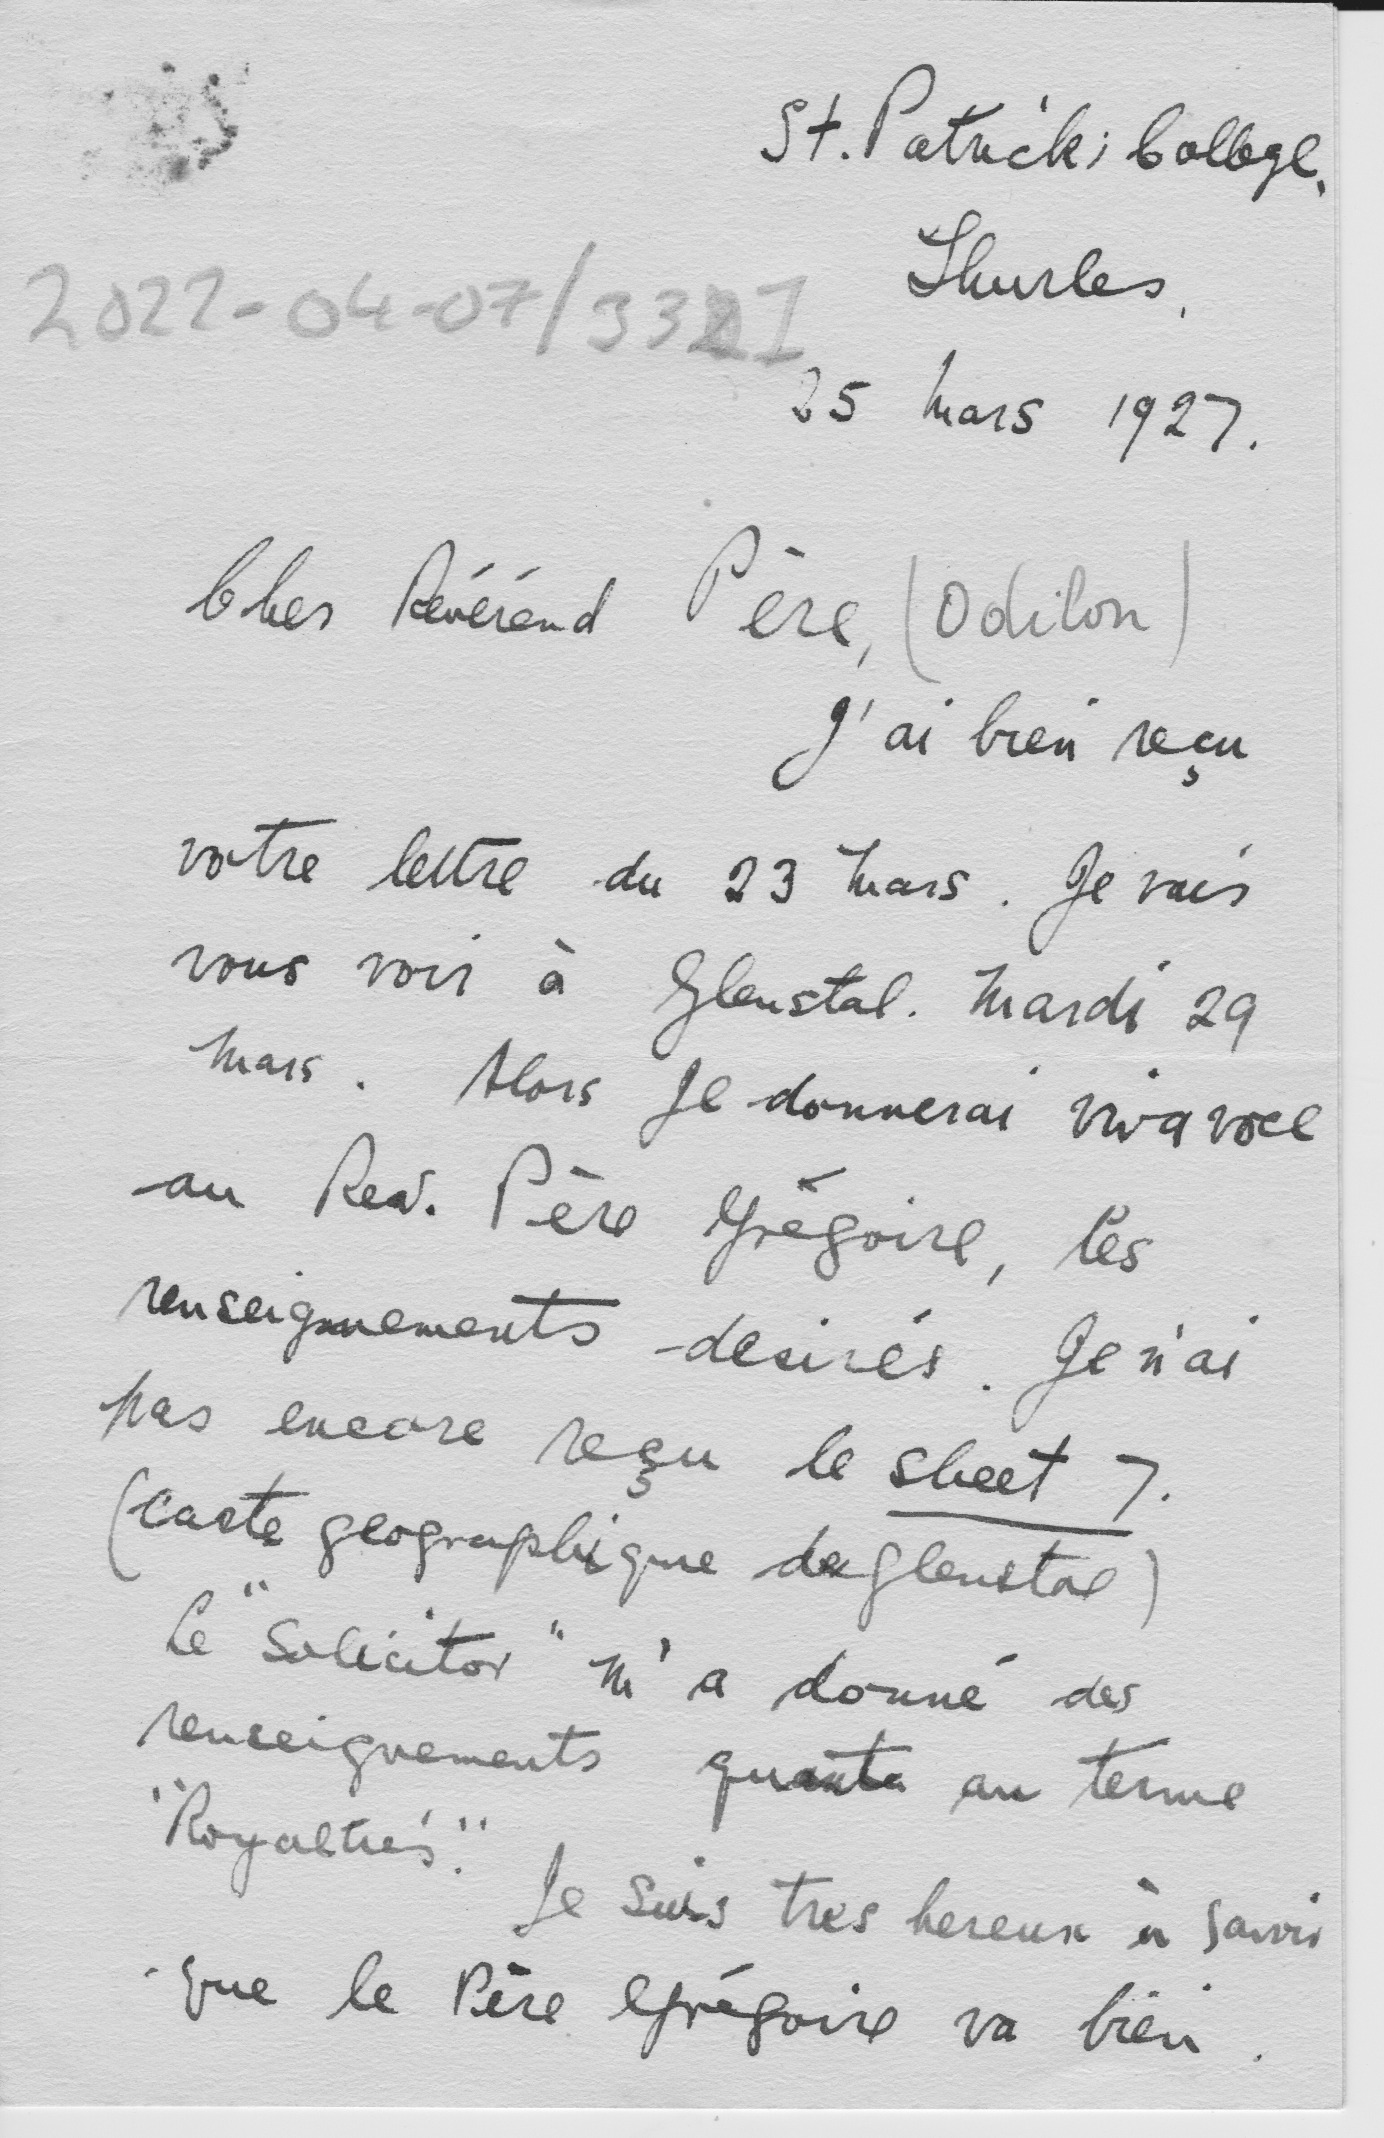 St. Patrick's College,
Thurles,
2022-04-07/33
25 Mars 1927.
Cher Révérend Père, (Odilon)
J'ai bien reçu
votre lettre du 23 Mars. Je vais
vous voir à Glenstal. Mardi 29
Mars. Alors je donnerai viva voce
au Rev. Père Grégoire, les
renseignements desirés. Je n'ai
pas encore reçu le sheet 7.
(carte geographique de Glenstal)
Le "Solicitor" m'a donné des
renseignements quant au terme
"Royalties".
Je suis tres hereux à savoir
que le Père Grégoire va bien.